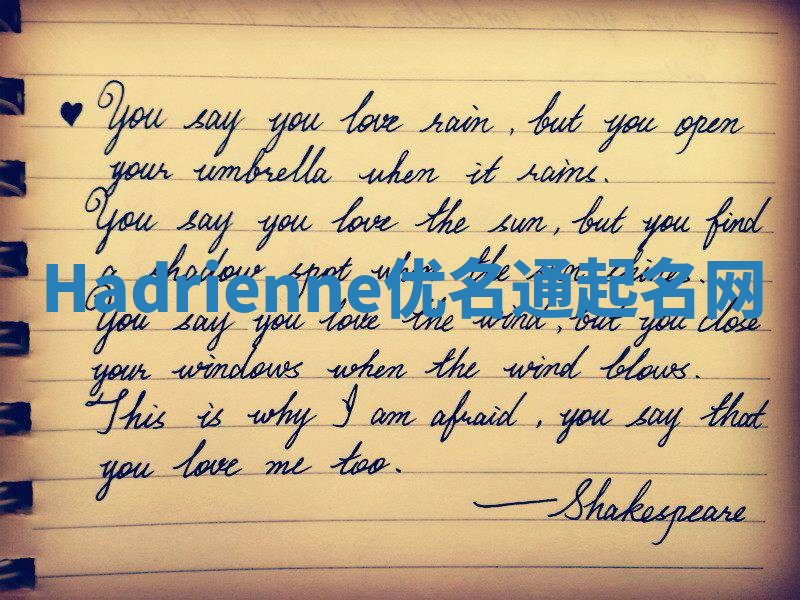 ♥ You say you love rain, but you open
your umbrella when it rains.
You say you love the sun, but you find
a shadow spot when the sun shines.
Hadrienne优名通起名网
You say you love the wind, but you close
your windows when the wind blows.
This is why I am afraid, you say that
you love me too.
—Shakespeare